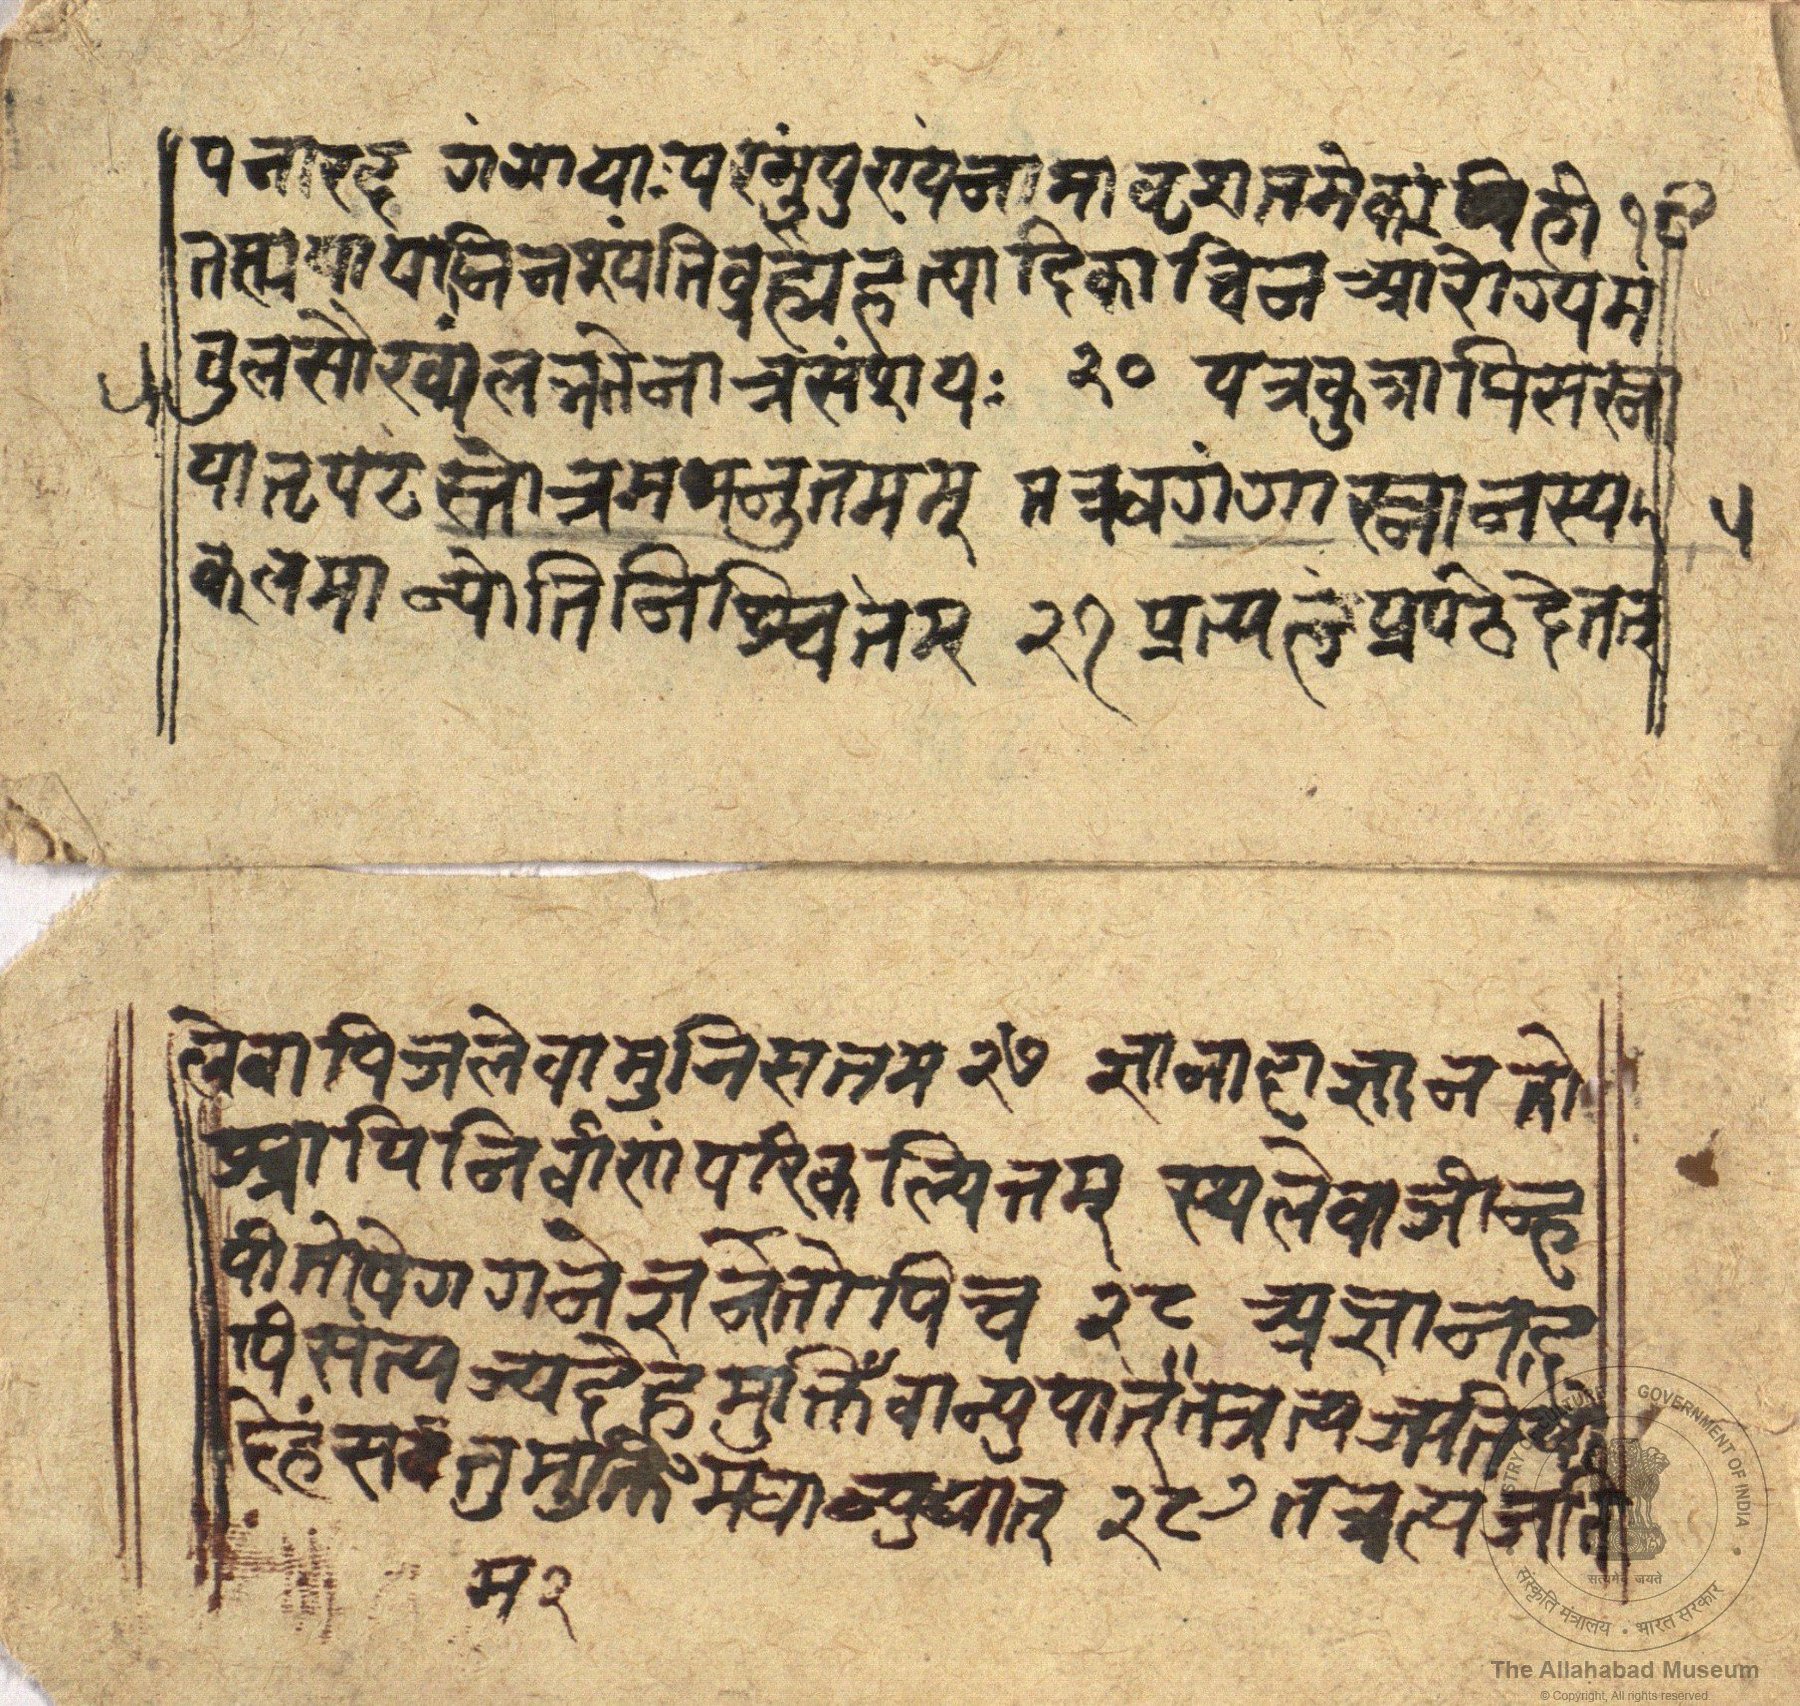 पनारद गंगायाः परमंपुरायंनामाष्टशतमेकं १९
तस्यपापानिनश्यंतिब्रह्महत्यादिकाश्विन आरोग्यम
तुलसौख्यंलभतेनात्रसंशयः २० यत्रकुत्रापिसस्ना
यात्पठेस्तोत्रमनुतमम् तत्रैवगंगास्नानस्य
५
५
कलमाप्नोतिनिश्चितम् २१ प्रत्यप्रपठेदेतत्
लेवापिजलेवामुनिसत्तम २७ ज्ञानादज्ञानतो
श्चापिनिर्वाणंपरिकल्पितम् स्थलेवाजीन्ह
वीतोयेगगनेज्ञर्नतोपिच २८ अज्ञानद
पीसंत्यज्यदेहमुक्तिंवान्पुयात् तत्रत्यजति
देहंसर्वतुमुक्तिमवाप्नुयात् २९ तत्रत्यजति
म२
MINISTRY OF CULTURE GOVERNMENT OF INDIA
सत्यमेव जयते
संस्कृति मंत्रालय • भारत सरकार
The Allahabad Museum
© Copyright, All rights reserved